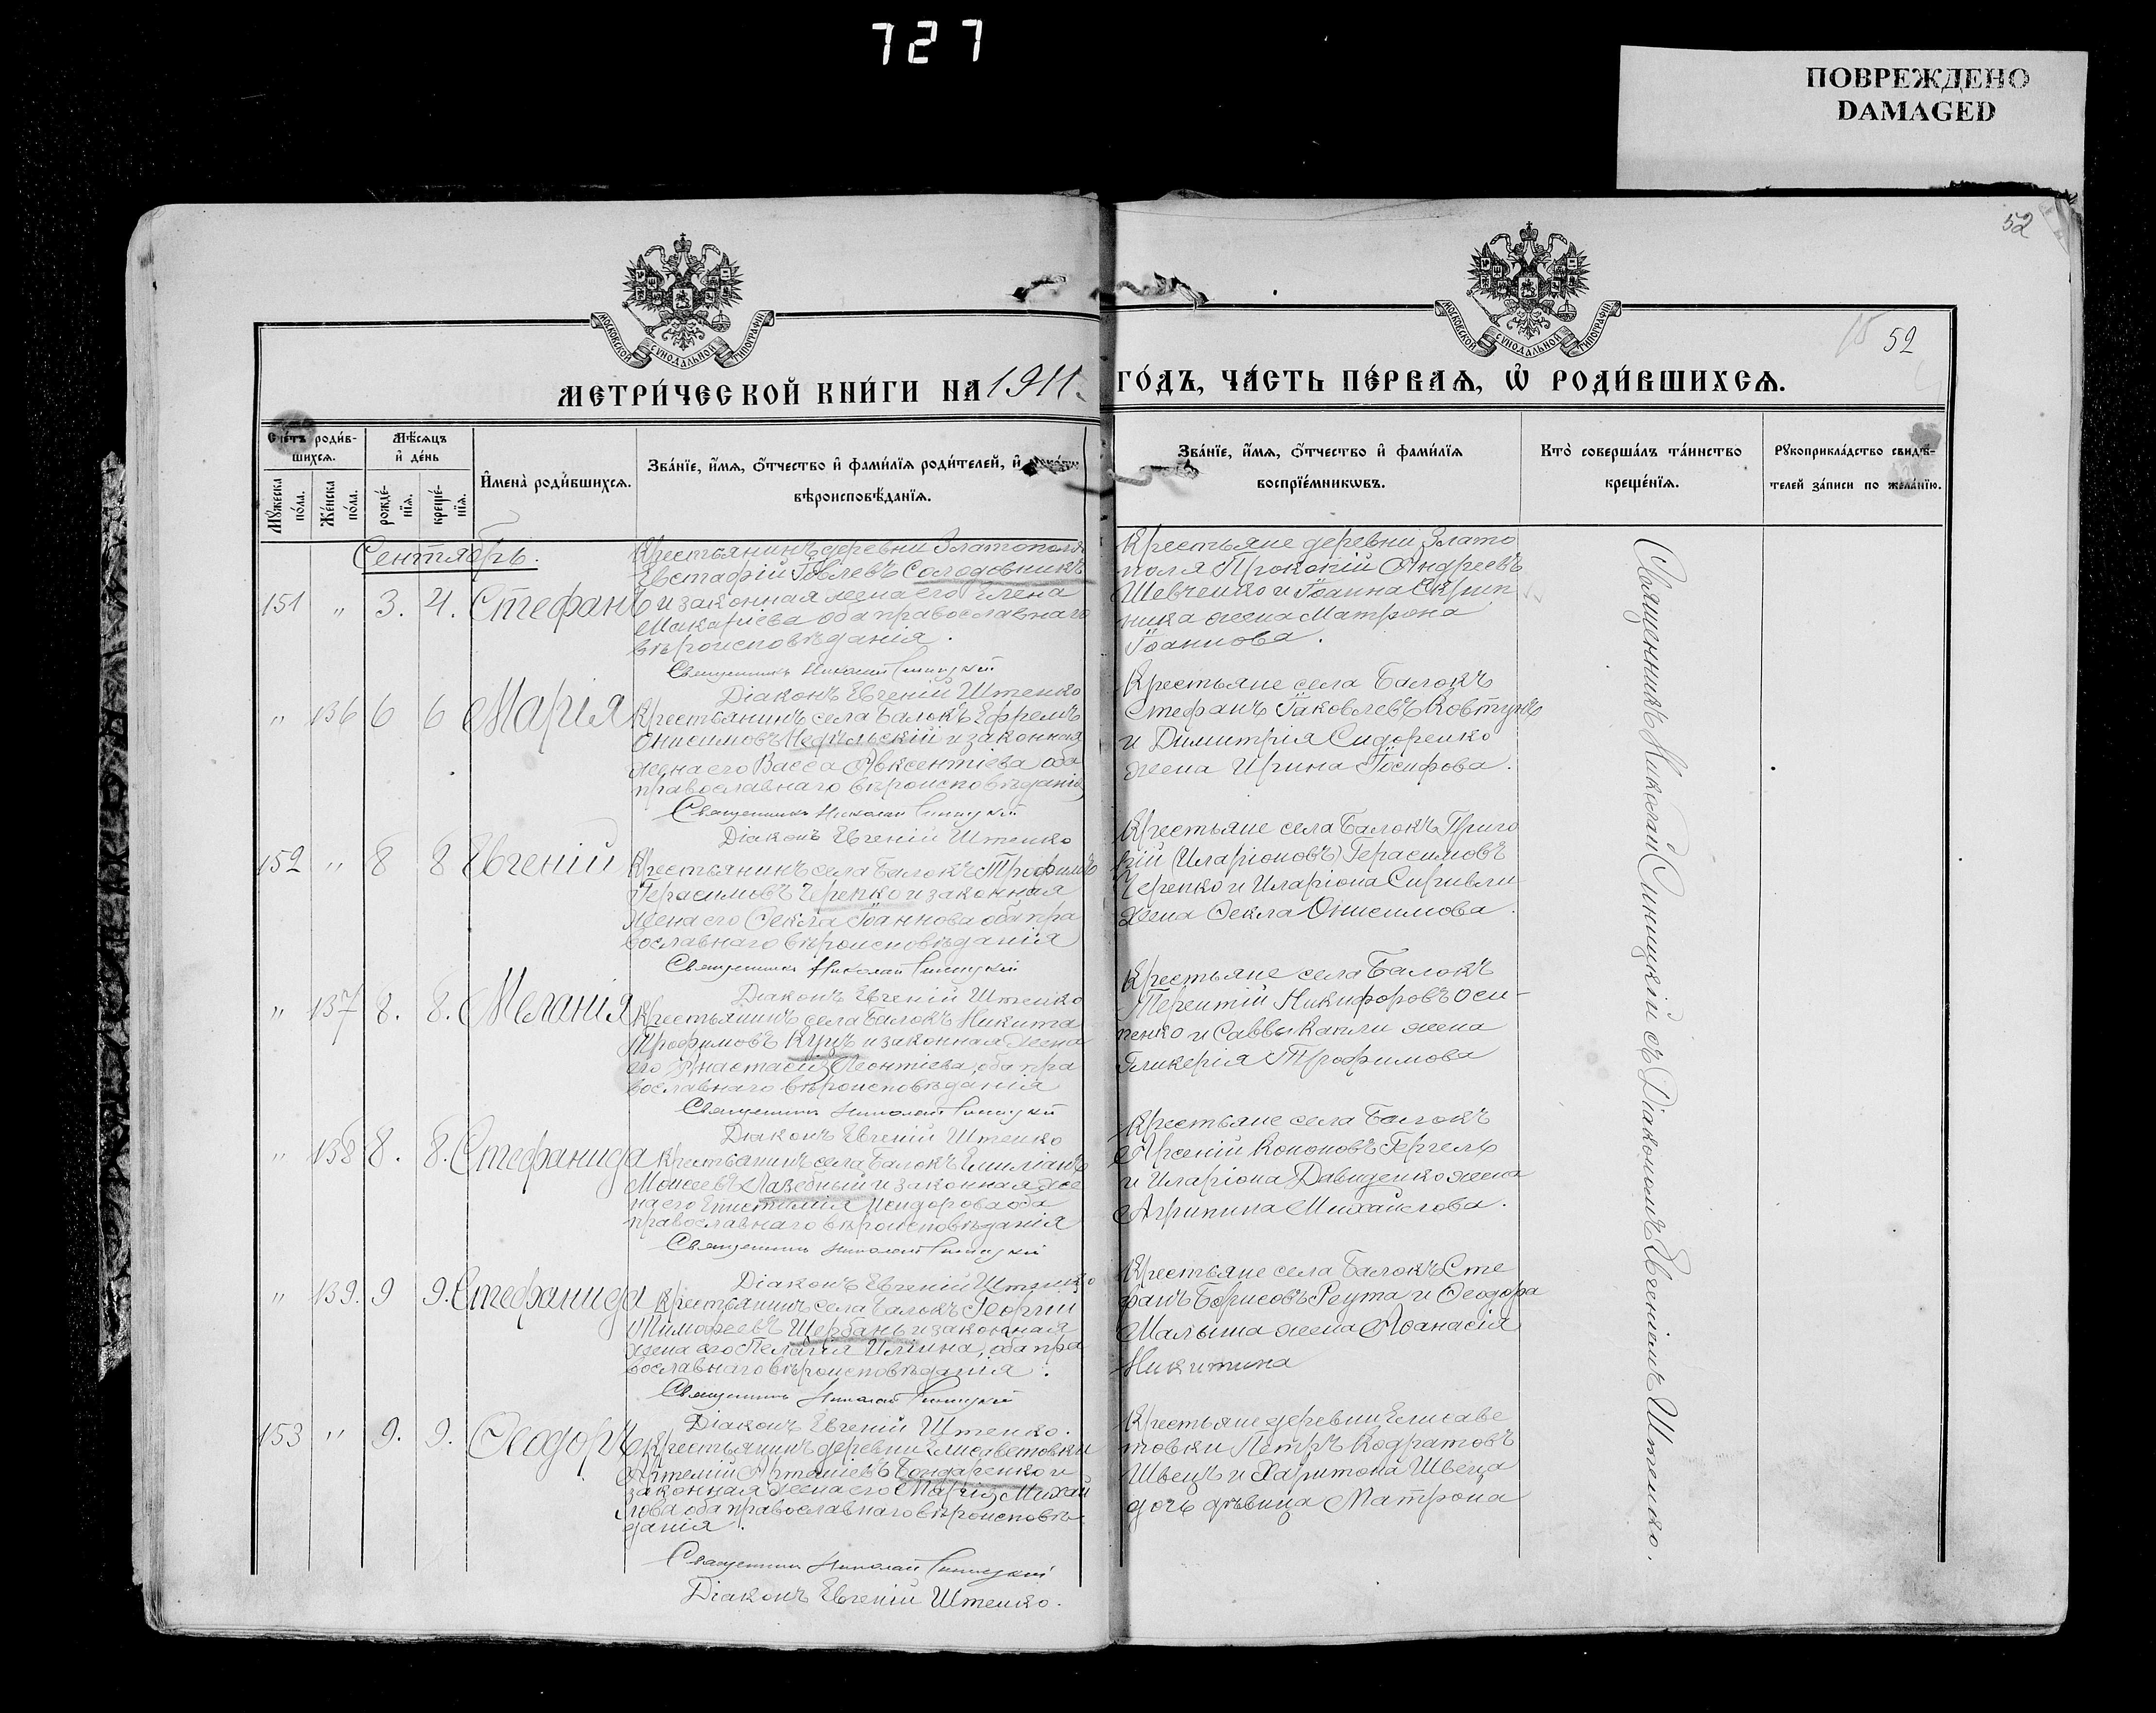 727
ПОВРЕЖДЕНО
DAMAGED
52
52
МОСКОВСКОЙ СѴНОДАЛЬНОЙ ТИПОГРАФІИ
МОСКОВСКОЙ СѴНОДАЛЬНОЙ ТИПОГРАФІИ
МЕТРИ́ЧЕСКОЙ КНИ́ГИ НА 1911 ГО́ДЪ, ЧА́СТЬ ПЕ́РВАЯ, Ѡ҆ РОДИ́ВШИХСЯ.
Сче́тъ роди́в-
шихся.
Мѣ́сяцъ
и҆ де́нь
И҆мена̀ роди́вшихся.
Зва́нїе, и҆́мя, о҆́тчество и҆ фами́лїя роди́телей, и҆
вѣроисповѣ́данїя.
Мꙋ́жеска
по́ла.
Же́нска
по́ла.
рожде́-
нїя.
креще́-
нїя.
Зва́нїе, и҆́мя, о҆́тчество и҆ фами́лїя
воспрїе́мникѡвъ.
Кто̀ соверша́лъ та́инство
креще́нїя.
Рꙋкоприкла́дство свидѣ́-
телей за́писи по жела́нїю.
Сентябрь.
151 " 3. 4. Стефанъ
Крестьянинъ деревни Златополя
Евстафій Іовлевъ Солодовникъ
и законная жена его Елена
Макаріева оба православнаго
вѣроисповѣданія.
Священникъ Николай Синицкій
Діаконъ Евгеній Штепко
Крестьяне деревни Злато
поля Прокопій Андреевъ
Шевченко и Іоанна Скрип
ника жена Матрона
Іоаннова.
" 136 6 6 Марія
Крестьянинъ села Балокъ Ефремъ
Онисимовъ Недѣльскій и законная
жена его Васса Авксентіева оба
православнаго вѣроисповѣданія
Священникъ Николай Синицкій
Діаконъ Евгеній Штепко
Крестьяне села Балокъ
Стефанъ Іаковлевъ Ковтунъ
и Димитрія Сидоренко
жена Ирина Іосифова.
152 " 8 8 Евгеній
Крестьянинъ села Балокъ Трофимъ
Герасимовъ Черепко и законная
жена его Ѳекла Іоаннова оба пра
вославнаго вѣроисповѣданія
Священникъ Николай Синицкій
Діаконъ Евгеній Штепко
Крестьяне села Балокъ Григо
рій (Иларіоновъ) Герасимовъ
Черепко и Иларіона
жена Ѳекла Онисимова.
" 137 8. 8. Меланія
Крестьянинъ села Балокъ Никита
Трофимовъ Куцъ и законная жена
его Анастасія Леонтіева, оба пра
вославнаго вѣроисповѣданія
Священникъ Николай Синицкій
Діаконъ Евгеній Штепко
Крестьяне села Балокъ
Терентій Никифоровъ Оси-
пенко и Саввы Капли жена
Гликерія Трофимова
" 138 8. 8. Стефанида
Крестьянинъ села Балокъ Емиліанъ
Моисеевъ Лазебный и законная же
на его Епистимія Исидорова оба
православнаго вѣроисповѣданія
Священникъ Николай Синицкій
Діаконъ Евгеній Штепко
Крестьяне села Балокъ
Арсеній Кононовъ Гергель
и Иларіона Давиденко жена
Агрипина Михайлова.
" 139. 9 9. Стефанида
Крестьянинъ села Балокъ Георгій
Тимофеевъ Щербань и законная
жена его Пелагія Иліина, оба пра
вославнаго вѣроисповѣданія.
Священникъ Николай Синицкій
Діаконъ Евгеній Штепко.
Крестьяне села Балокъ Сте
фанъ Борисовъ Реута и Ѳеодора
Малыша жена Аѳанасія
Никитина
153 " 9. 9. Ѳеодоръ
Крестьянинъ деревни Елисаветовки
Артемій Артеміевъ Бондаренко и
законная жена его Марія Михай
лова оба православнаго вѣроисповѣ-
данія.
Священникъ Николай Синицкій
Діаконъ Евгеній Штепко.
Крестьяне деревни Елисаве
товки Петръ Кодратовъ
Швецъ и Харитона Швеца
дочь дѣвица Матрона
Священникъ Николай Синицкій съ Діакономъ Евгеніемъ Штепко.